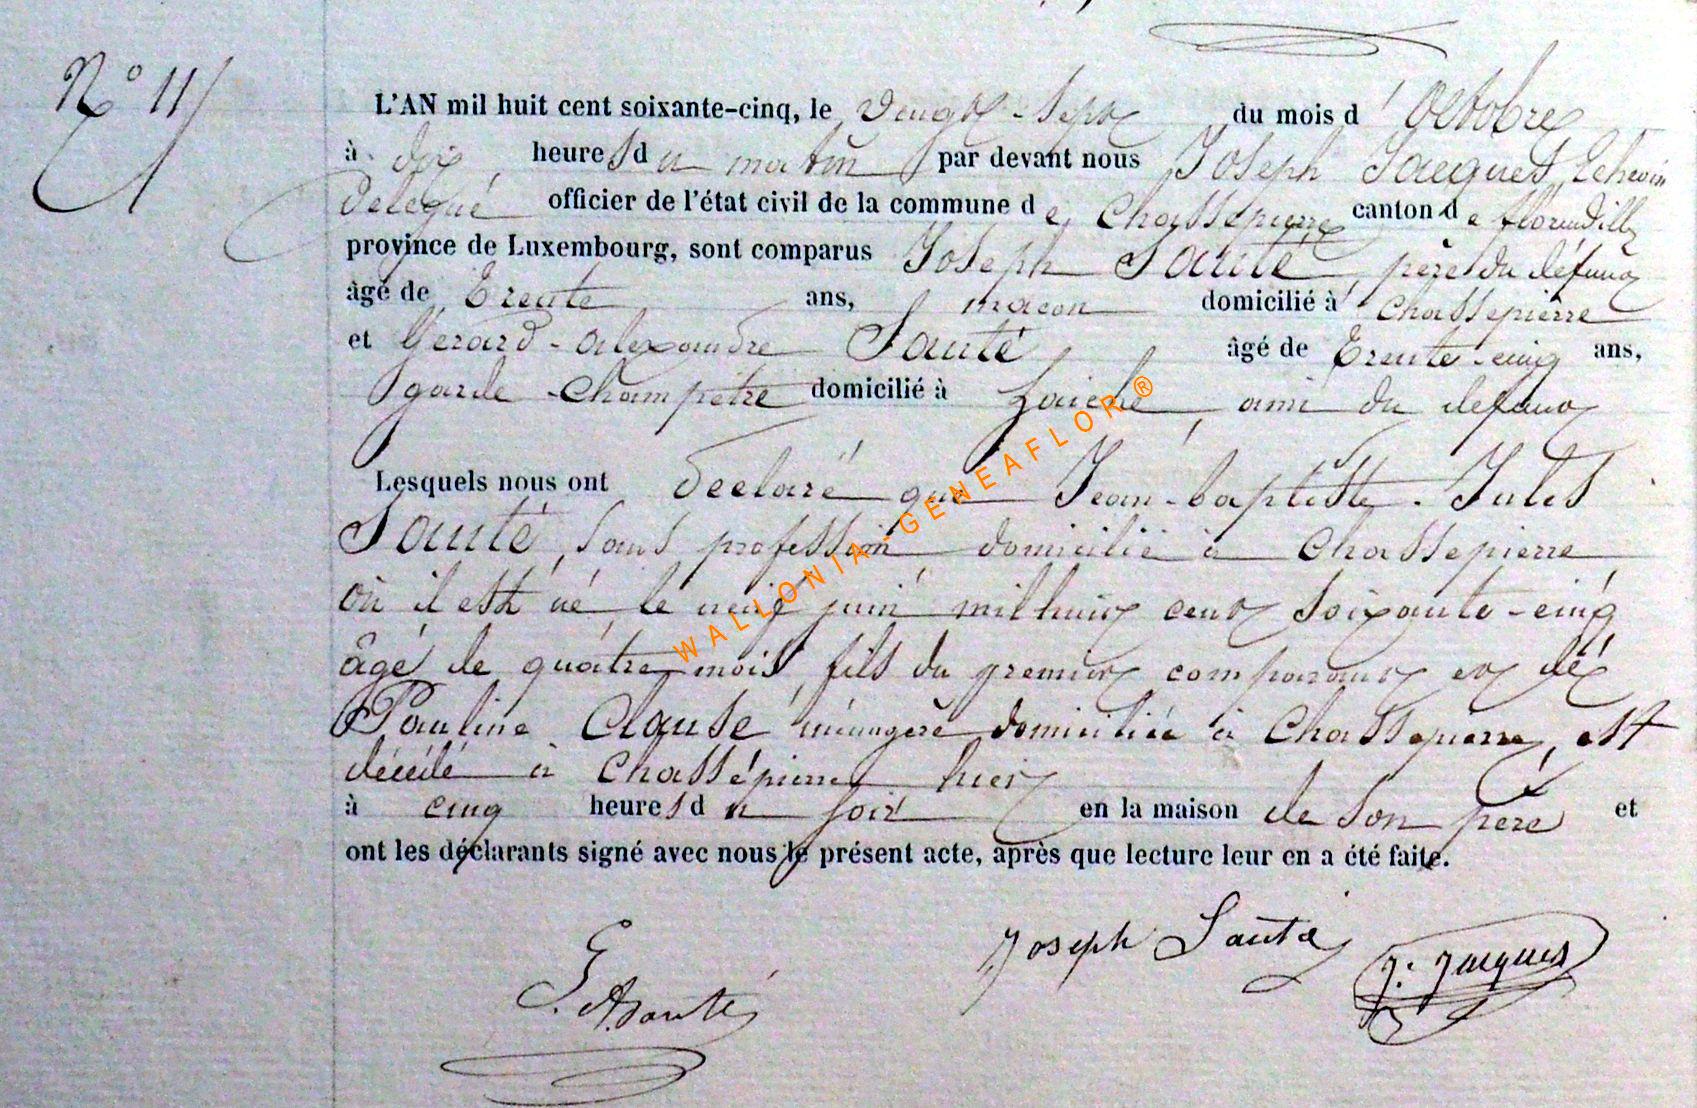 N° 11
L'AN mil huit cent soixante-cinq, le vingt-sept du mois d'Octobre
à dix heures du matin par devant nous Joseph Jacques, Echevin
délégué officier de l'état civil de la commune de Chassepierre canton de florenville
province de Luxembourg, sont comparus Joseph Santé, père du défunt
âgé de Trente ans, maçon domicilié à Chassepierre
et Gérard-alexandre Santé âgé de Trente-cinq ans,
garde-champêtre domicilié à Laiche, ami du defunt
Lesquels nous ont déclaré que Jean-baptiste-Jules
Santé, sans profession domicilié à Chassepierre
où il est né le neuf juin mil huit cent soixante-cinq
âgé de quatre mois, fils du premier comparant et de
Pauline Clause ménagère domiciliée à Chassepierre, est
décédé à Chassepierre hier
à cinq heures du soir en la maison de son père et
ont les déclarants signé avec nous le présent acte, après que lecture leur en a été faite.
G. A. Santé
Joseph Santé
J. Jacques
WALLONIA-GENEAFLOR®